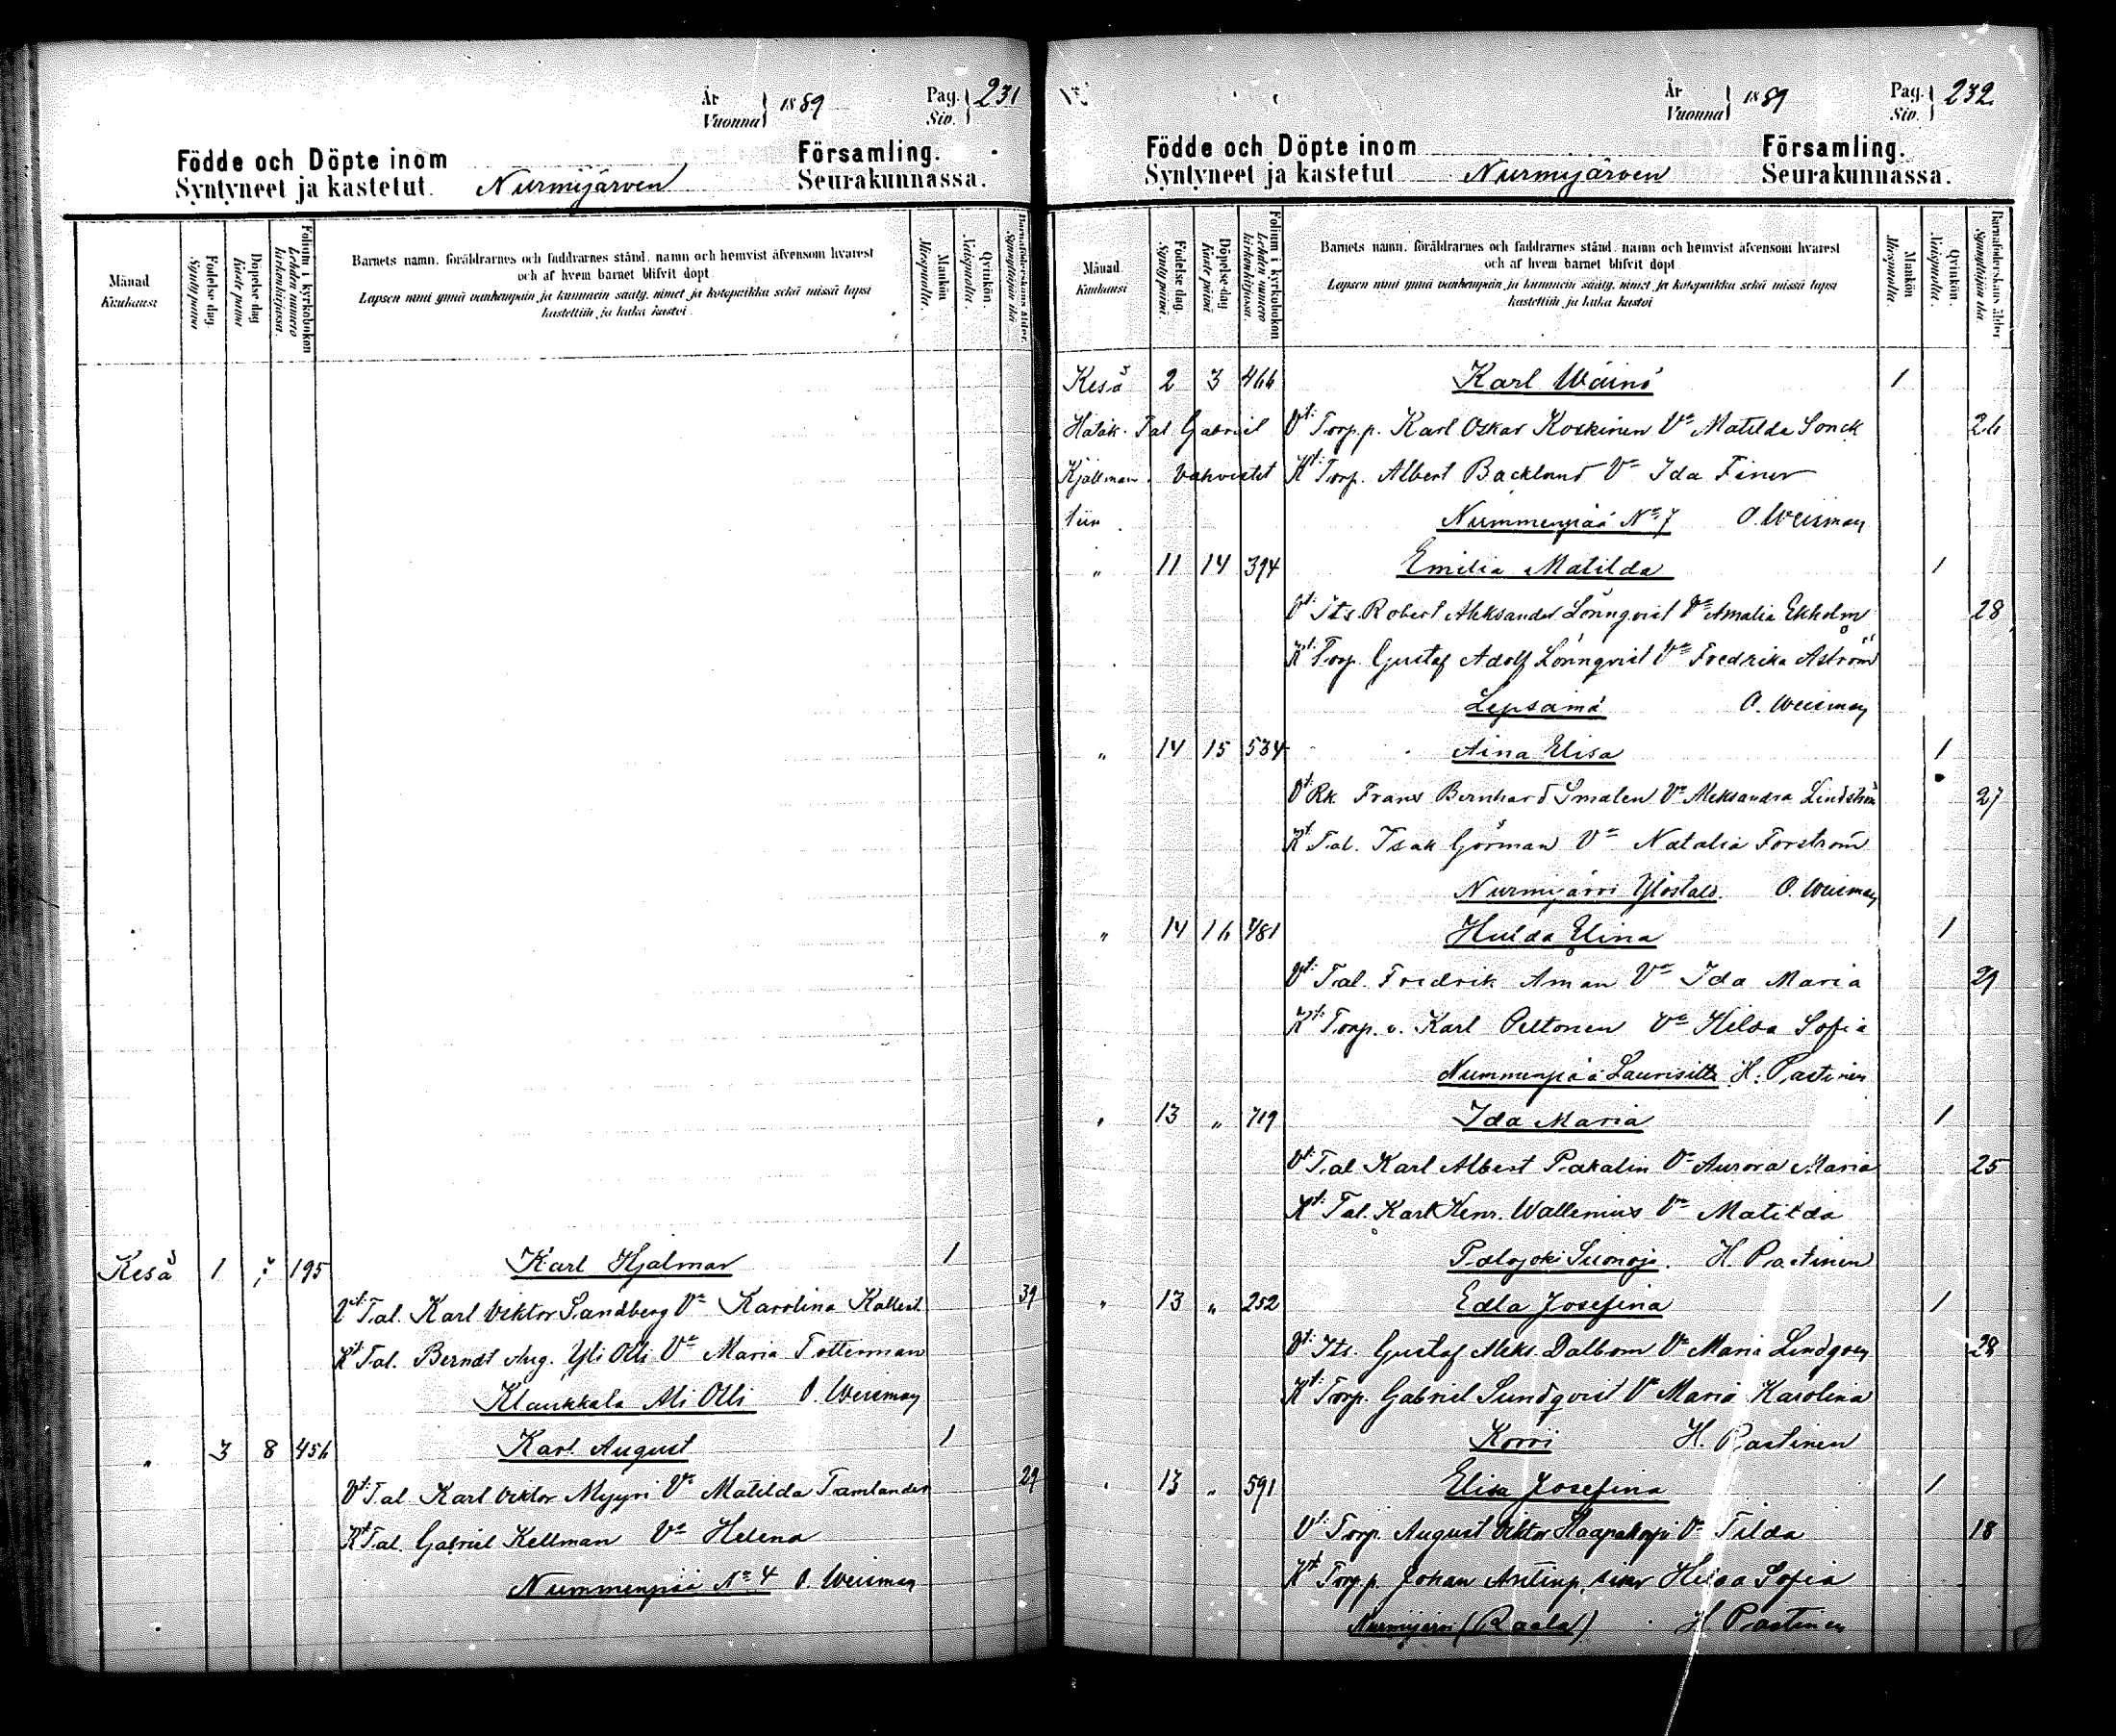 År
Vuonna } 1889
Pag.
Siv. } 231
Födde och Döpte inom
Syntyneet ja kastetut. Nurmijärven
Församling.
Seurakunnassa.
Månad
Kuukausi
Födelse-dag.
Syntypäinä
Döpelse-dag
Kaste päinä
Folium i kyrkoboken
Lehden numero kirkonkirjassa.
Barnets namn, föräldrarnes och faddrarnes stånd, namn och hemvist äfvensom hvarest
och af hvem barnet blifvit döpt
Lapsen nimi ynnä vanhempain ja kummein sääty, nimet ja kotopaikka sekä missä lapsi
kastettiin ja kuka kastoi.
Mankön
Miespuolta.
Qvinkön
Naispuolta.
Barnaföderskans ålder.
Synnyttäjän ikä
Kesä 1 195 Karl Hjalmar 1
Vt: Tal. Karl Viktor Sandberg Vo Karolina 39
Kt: Tal. Berndt Aug. Yli Olli Vo Maria Totterman
Klaukkala Ali Olli O. Weisman
" 3 8 456 Karl August 1
Vt: Tal. Karl Viktor Myyri Vo Matilda Tamlander 29
Kt Tal. Gabriel Kellman Vo Helena
Nummenpää No 4 O. Weisman
År
Vuonna } 1889
Pag.
Siv. } 232
Födde och Döpte inom
Syntyneet ja kastetut Nurmijärven
Församling.
Seurakunnassa.
Månad
Kuukausi
Födelse-dag.
Syntypäinä
Döpelse-dag
Kaste päinä
Folium i kyrkoboken
Lehden numero kirkonkirjassa.
Barnets namn, föräldrarnes och faddrarnes stånd, namn och hemvist äfvensom hvarest
och af hvem barnet blifvit döpt
Lapsen nimi ynnä vanhempain ja kummein sääty, nimet ja kotopaikka sekä missä lapsi
kastettiin ja kuka kastoi
Mankön
Miespuolta.
Qvinkön.
Naispuolta.
Barnaföderskans ålder
Synnyttäjän ikä
Kesä 2 3 466 Karl Wäinö 1
Hätäk. Tal Gabriel Vt: Torp.p. Karl Oskar Koskinen Vo Matilda Sonck 26
Kjällman vahvistet Kt: Torp. Albert Backlund Vo Ida Finer
tiin. Nummenpää No 7 O. Weisman
" 11 14 394 Emilia Matilda 1
Vt: Its. Robert Aleksander Lönnqvist Vo Amalia Ekholm 28
Kt: Torp. Gustaf Adolf Lönnqvist Vo Fredrika Åström
Lepsämä O. Weisman
" 14 15 534 Aina Elisa 1
Vt: Rk Frans Bernhard Smalen Vo Aleksandra Lindström 27
Kt: Tal. Isak Görman Vo Natalia Forström
Nurmijärvi Ylöstalo. O. Weisman
" 14 16 481 Hulda Elina 1
Vt: Tal. Fredrik Åman Vo Ida Maria 29
Kt: Torp. v. Karl Peltonen Vo Hilda Sofia
Nummenpää Laurisilta H. Pastinen
" 13 " 719 Ida Maria 1
Vt: Tal Karl Albert Pakalin Vo Aurora Maria 25
Kt: Tal. Karl Henr. Wallenius Vo Matilda
Palojoki Suonoja. H. Pastinen
" 13 " 252 Edla Josefina 1
Vt: Its. Gustaf Aleks. Dalbom Vo Maria Lindgren 28
Kt: Torp. Gabriel Sundqvist Vo Maria Karolina
Korvi H. Pastinen
" 13 " 591 Elisa Josefina 1
Vt: Torp. August Viktor Haapakoji Vo Tilda 18
Kt Torp.p. Johan Antinp. sisar Hilda Sofia
Nurmijärvi (Raala) H. Pastinen